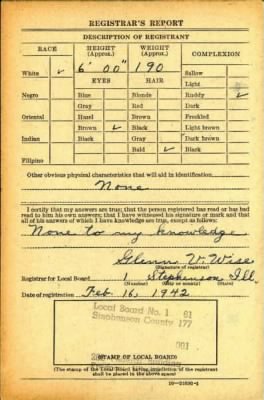 REGISTRAR'S REPORT
DESCRIPTION OF REGISTRANT
RACE HEIGHT (Approx.) WEIGHT (Approx.) COMPLEXION
White ✓ 6' 00" 190 Sallow
EYES HAIR Light
Negro Blue Blonde Ruddy ✓
Gray Red Dark
Oriental Hazel Brown Freckled
Brown ✓ Black Light brown
Indian Black Gray Dark brown
Bald ✓ Black
Filipino
Other obvious physical characteristics that will aid in identification
None
I certify that my answers are true; that the person registered has read or has had
read to him his own answers; that I have witnessed his signature or mark and that
all of his answers of which I have knowledge are true, except as follows:
None to my knowledge
Glenn V. Wise
(Signature of registrar)
Registrar for Local Board 1 Stephenson Ill.
(Number) (City or county) (State)
Date of registration Feb. 16, 1942
Local Board No. 1 61
Stephenson County 177
001
(STAMP OF LOCAL BOARD)
(The stamp of the Local Board having jurisdiction of the registrant
shall be placed in the above space)